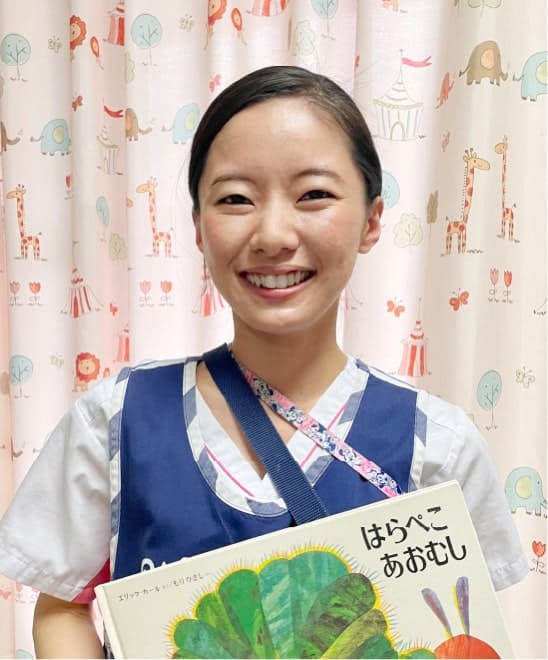 はらぺこ
あおむし
エリック・カール さく／もり ひさし やく